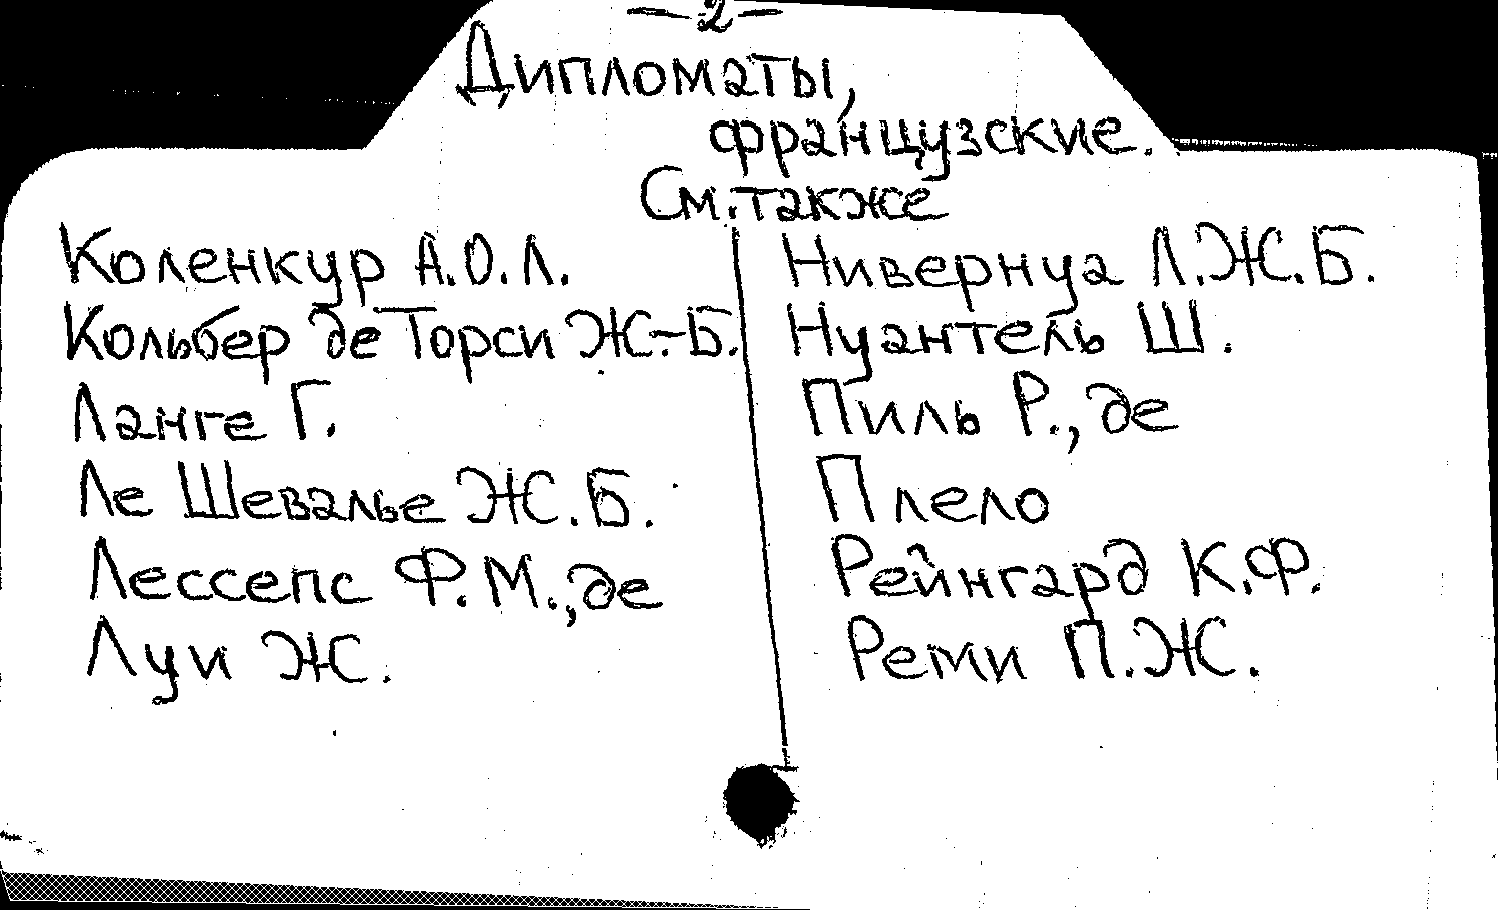 — 2 —
Дипломаты,
французские.
См. также
Коленкур А.О.Л.
Кольбер де Торси Ж.-Б.
Ланге Г.
Ле Шевалье Ж.Б.
Лессепс Ф.М., де
Луи Ж.
Нивернуа Л.Ж.Б.
Нуантель Ш.
Пиль Р., де
Плело
Рейнгард К.Ф.
Реми П.Ж.